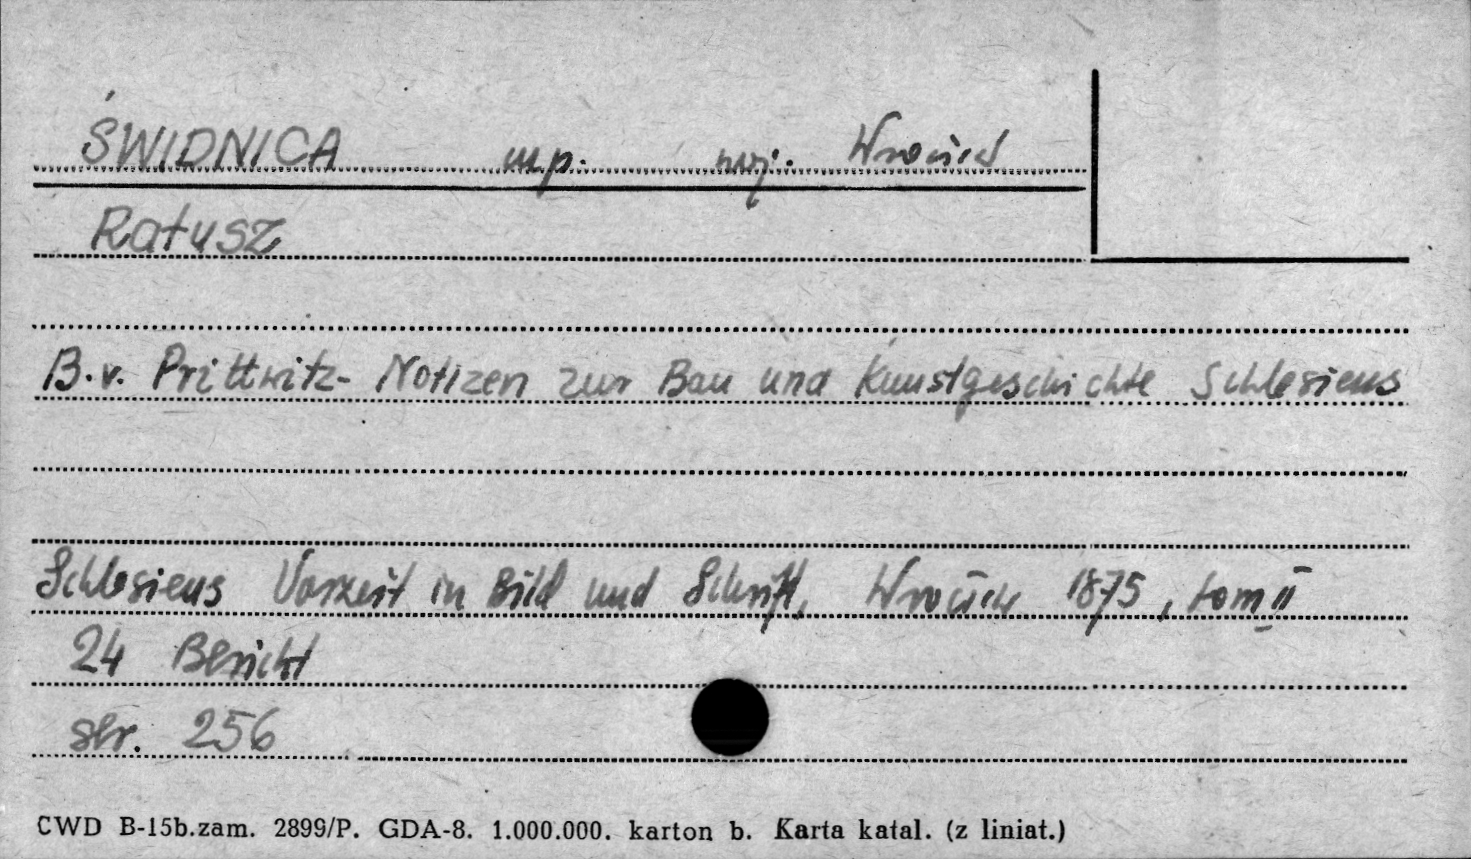 ŚWIDNICA mp. woj. Wrocław
Ratusz
B.v. Prittwitz- Notizen zur Bau und Kunstgeschichte Schlesiens
Schlesiens Vorzeit in Bild und Schrift, Wrocław 1875, tom II
24 Bericht
str. 256
CWD B-15b.zam. 2899/P. GDA-8. 1.000.000. karton b. Karta katal. (z liniat.)